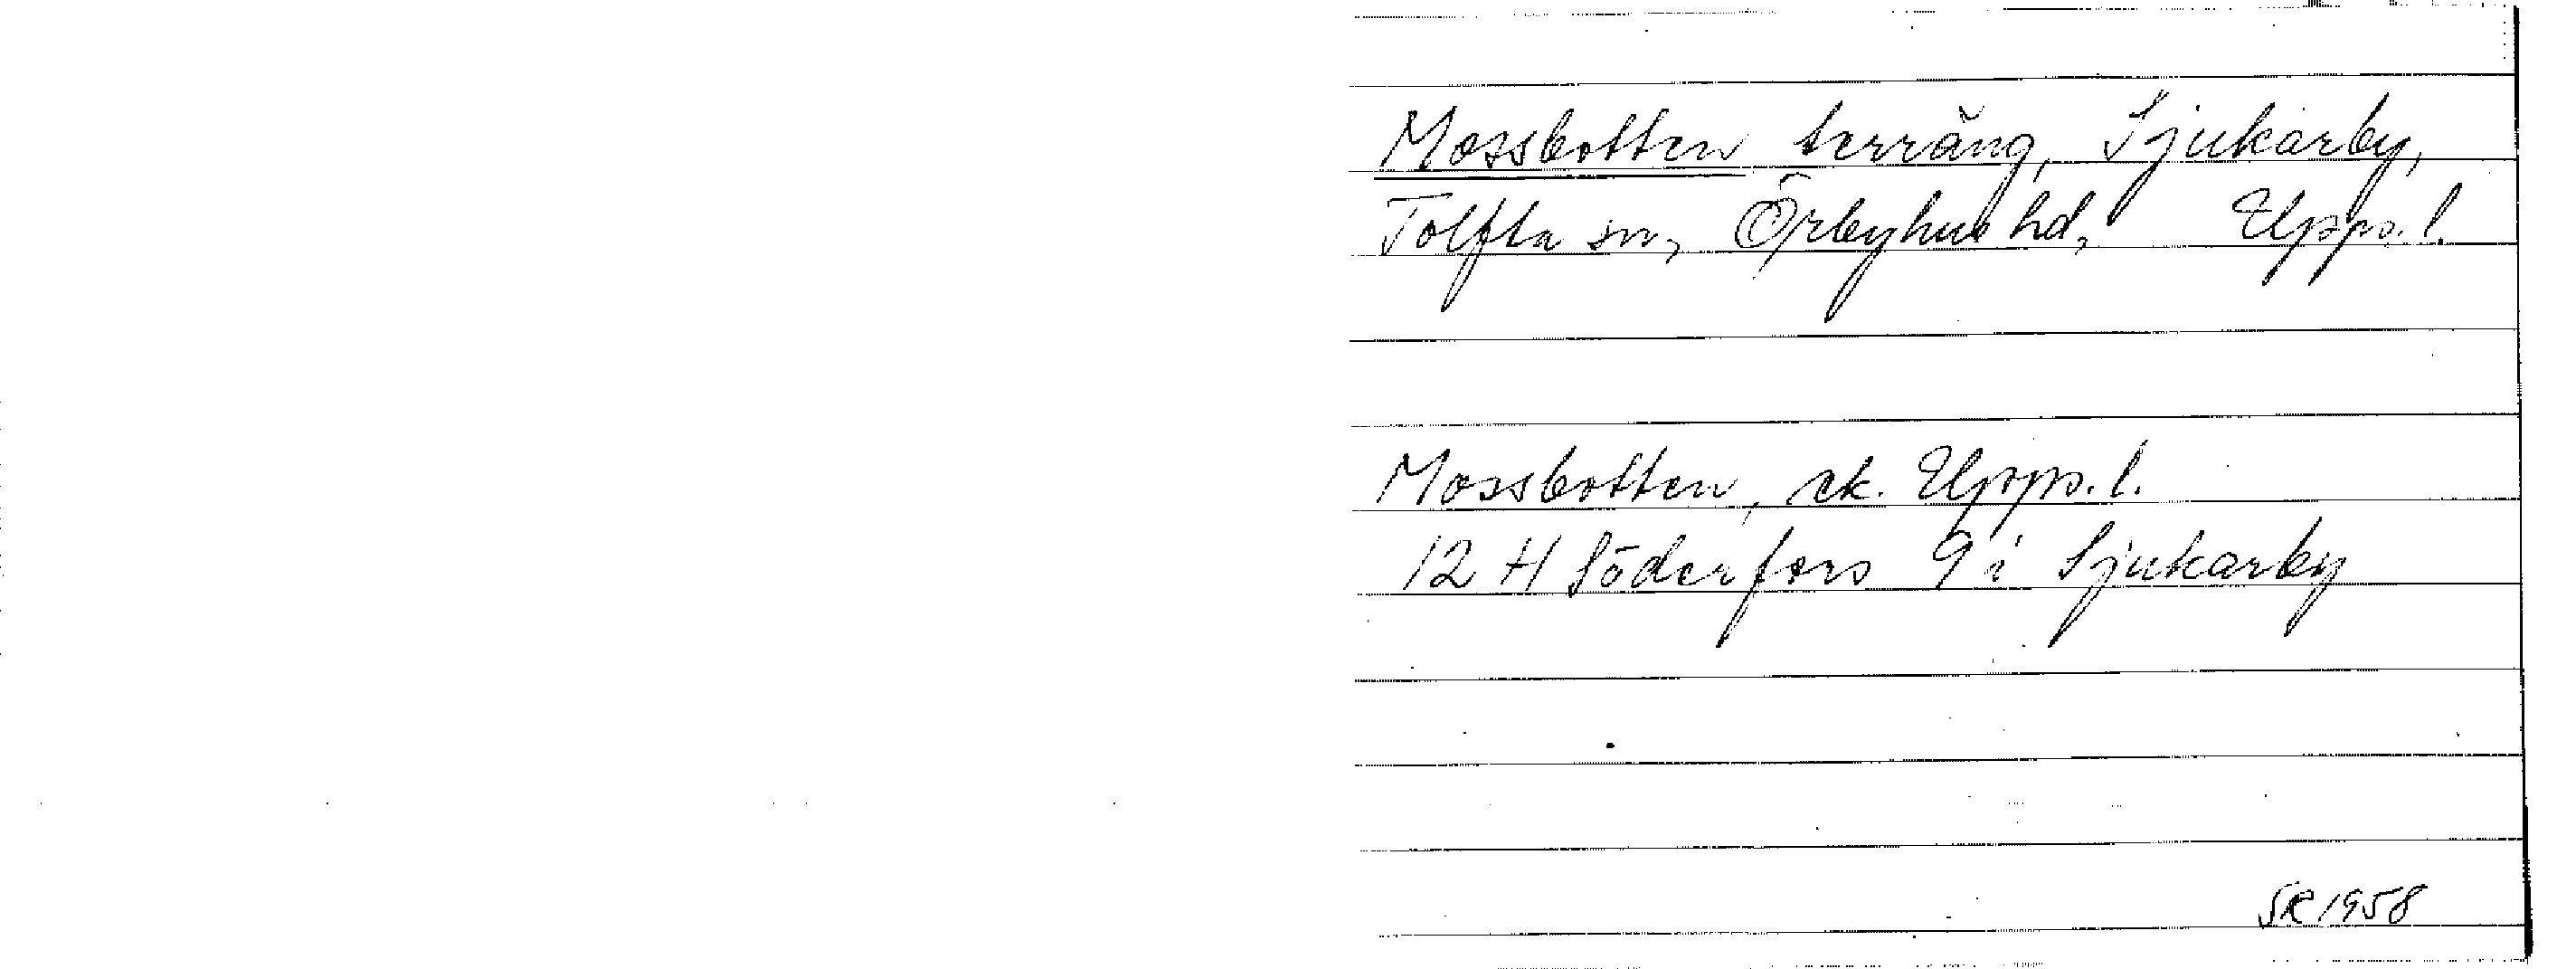 Mossbotten terräng, Sjukarby,
Tolfta sn, Örbyhus hd, Upps. l.
Mossbotten, ek. Upps. l.
12 H Söderfors 9 i Sjukarby
SR 1958